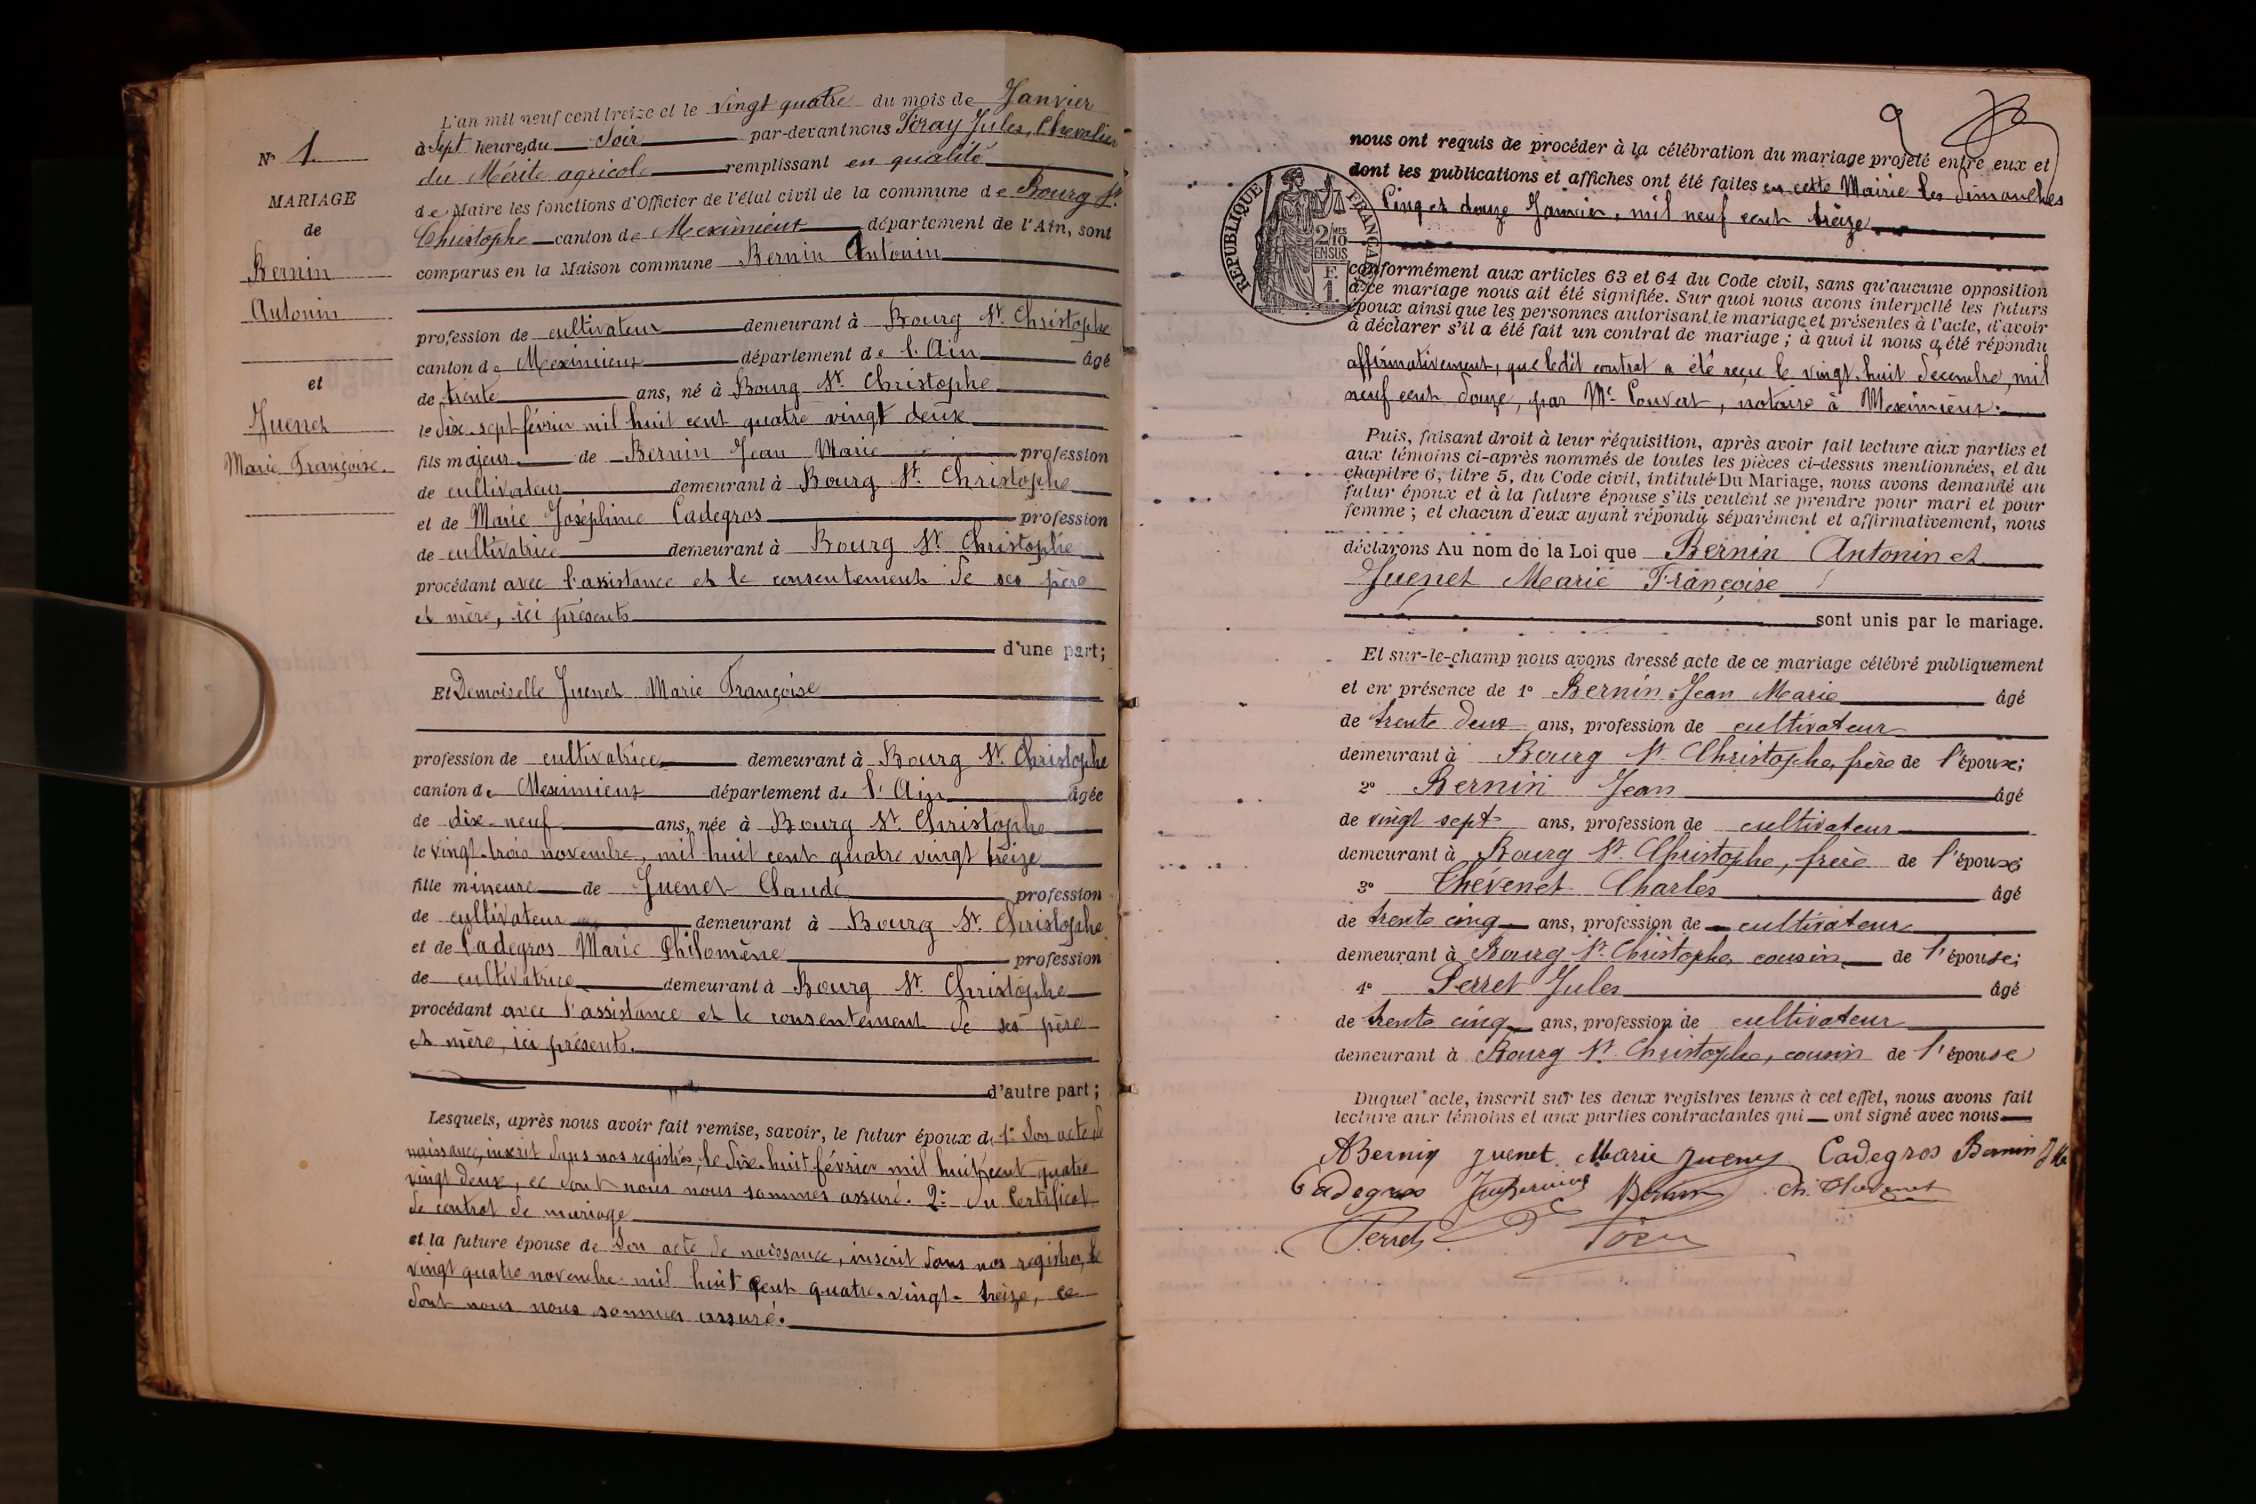 L'an mil neuf cent treize et le vingt quatre du mois de Janvier
à Sept heures du Soir par-devant nous Féray Jules, Chevalier
du Mérite agricole remplissant en qualité
de Maire les fonctions d'Officier de l'état civil de la commune de Bourg St.
Christophe canton de Meximieux département de l'Ain, sont
comparus en la Maison commune Bernin Antonin
profession de cultivateur demeurant à Bourg St. Christophe
canton de Meximieux département de l'Ain âgé
de trente ans, né à Bourg St. Christophe
le dix-sept février mil huit cent quatre vingt deux
fils majeur de Bernin Jean Marie profession
de cultivateur demeurant à Bourg St. Christophe
et de Marie Joséphine Cadegros profession
de cultivatrice demeurant à Bourg St. Christophe
procédant avec l'assistance et le consentement de ses père
et mère, ici présents
d'une part;
Et Demoiselle Juenet Marie Françoise
profession de cultivatrice demeurant à Bourg St. Christophe
canton de Meximieux département de l'Ain âgée
de dix-neuf ans, née à Bourg St. Christophe
le vingt-trois novembre, mil huit cent quatre vingt treize
fille mineure de Juenet Claude profession
de cultivateur demeurant à Bourg St. Christophe
et de Cadegros Marie Philomène profession
de cultivatrice demeurant à Bourg St. Christophe
procédant avec l'assistance et le consentement de ses père
et mère, ici présents.
d'autre part;
Lesquels, après nous avoir fait remise, savoir, le futur époux de 1° Son acte de
naissance, inscrit dans nos registres, le dix-huit février mil huit cent quatre
vingt deux, ce dont nous nous sommes assuré. 2° du Certificat
de contrat de mariage
et la future épouse de Son acte de naissance, inscrit dans nos registres, le
vingt quatre novembre mil huit cent quatre-vingt-treize, ce
dont nous nous sommes assuré.
N° 1
MARIAGE
de
Bernin
Antonin
et
Juenet
Marie Françoise.
nous ont requis de procéder à la célébration du mariage projeté entre eux et
dont les publications et affiches ont été faites en cette Mairie les dimanches
Cinq et douze Janvier, mil neuf cent treize
RÉPUBLIQUE FRANÇAISE
2/10 MES
EN SUS
F.
1.
conformément aux articles 63 et 64 du Code civil, sans qu'aucune opposition
à ce mariage nous ait été signifiée. Sur quoi nous avons interpellé les futurs
époux ainsi que les personnes autorisant le mariage et présentes à l'acte, d'avoir
à déclarer s'il a été fait un contrat de mariage; à quoi il nous a été répondu
affirmativement, que ledit contrat a été reçu le vingt-huit décembre, mil
neuf cent douze, par Me Convert, notaire à Meximieux.
Puis, faisant droit à leur réquisition, après avoir fait lecture aux parties et
aux témoins ci-après nommés de toutes les pièces ci-dessus mentionnées, et du
chapitre 6, titre 5, du Code civil, intitulé Du Mariage, nous avons demandé au
futur époux et à la future épouse s'ils veulent se prendre pour mari et pour
femme; et chacun d'eux ayant répondu séparément et affirmativement, nous
déclarons Au nom de la Loi que Bernin Antonin et
Juenet Marie Françoise
sont unis par le mariage.
Et sur-le-champ nous avons dressé acte de ce mariage célébré publiquement
et en présence de 1° Bernin Jean Marie âgé
de trente deux ans, profession de cultivateur
demeurant à Bourg St. Christophe, frère de l'époux;
2° Bernin Jean âgé
de vingt sept ans, profession de cultivateur
demeurant à Bourg St. Christophe, frère de l'époux;
3° Thévenet Charles âgé
de trente cinq ans, profession de cultivateur
demeurant à Bourg St. Christophe cousin de l'épouse;
4° Perret Jules âgé
de trente cinq ans, profession de cultivateur
demeurant à Bourg St. Christophe, cousin de l'épouse
Duquel acte, inscrit sur les deux registres tenus à cet effet, nous avons fait
lecture aux témoins et aux parties contractantes qui ont signé avec nous
ABernin Juenet Marie Juenet Cadegros Bernin JM
Cadegros Bernin Ch. Thévenet
Perret